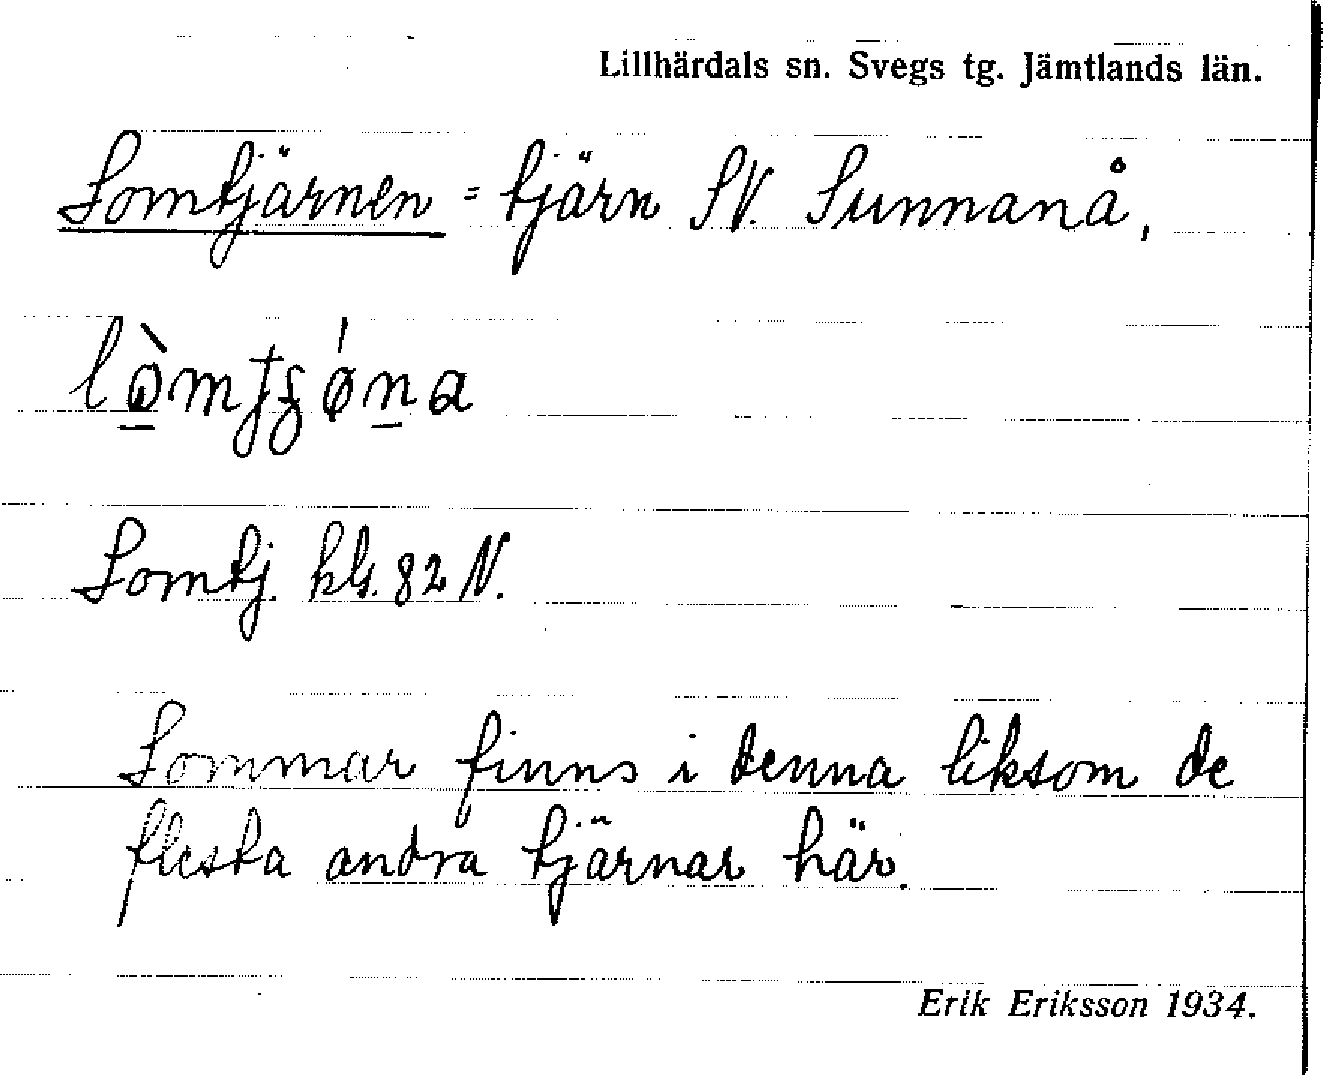 Lillhärdals sn. Svegs tg. Jämtlands län.
Lomtjärnen = tjärn SV. Sunnanå,
Lomtj. kbl. 82 N.
Lommar finns i denna liksom de
flesta andra tjärnar här.
Erik Eriksson 1934.